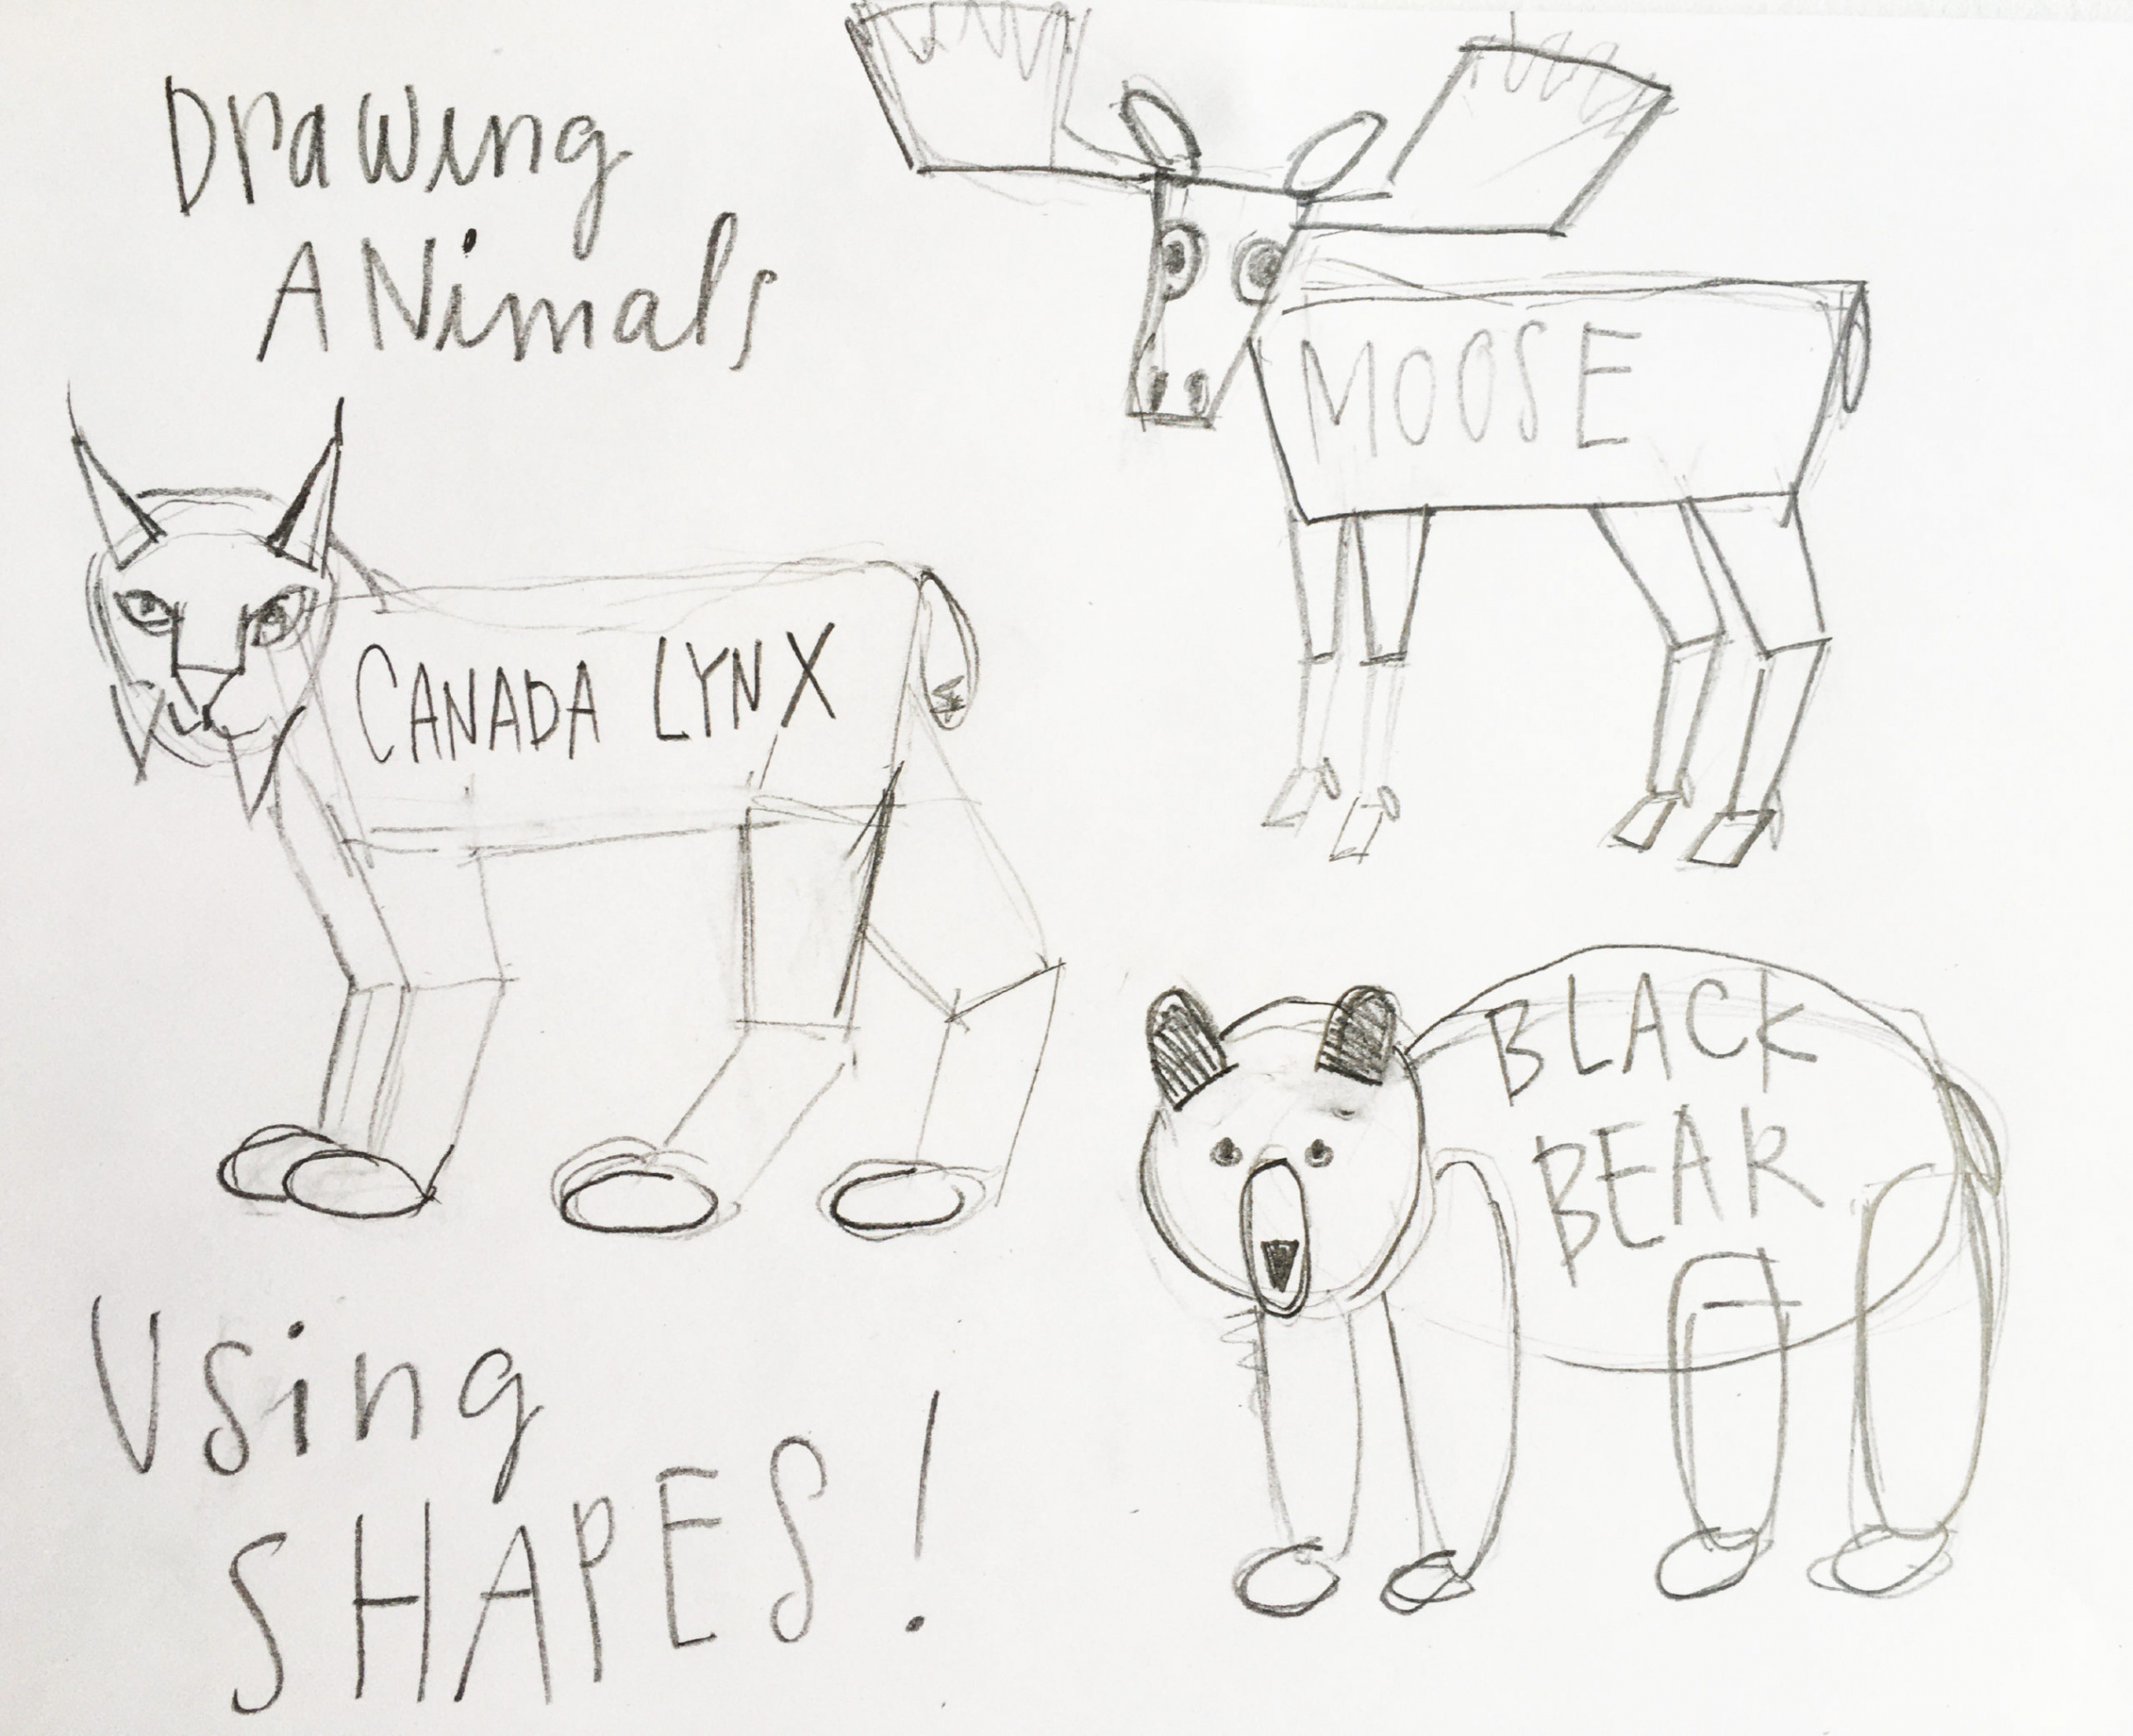 Drawing
ANimals
MOOSE
CANADA LYNX
BLACK
BEAR
Using
SHAPES!